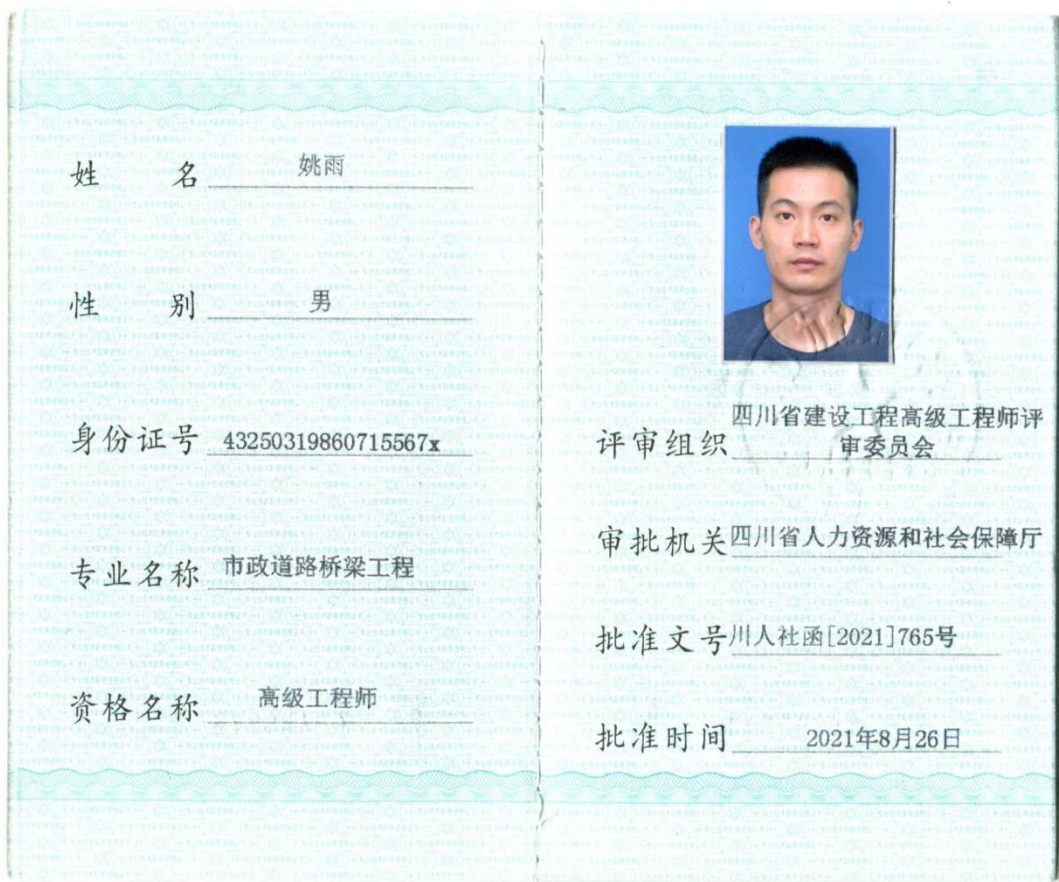 姓 名 姚雨
性 别 男
身份证号 43250319860715567x
专业名称 市政道路桥梁工程
资格名称 高级工程师
评审组织 四川省建设工程高级工程师评
审委员会
审批机关 四川省人力资源和社会保障厅
批准文号 川人社函[2021]765号
批准时间 2021年8月26日